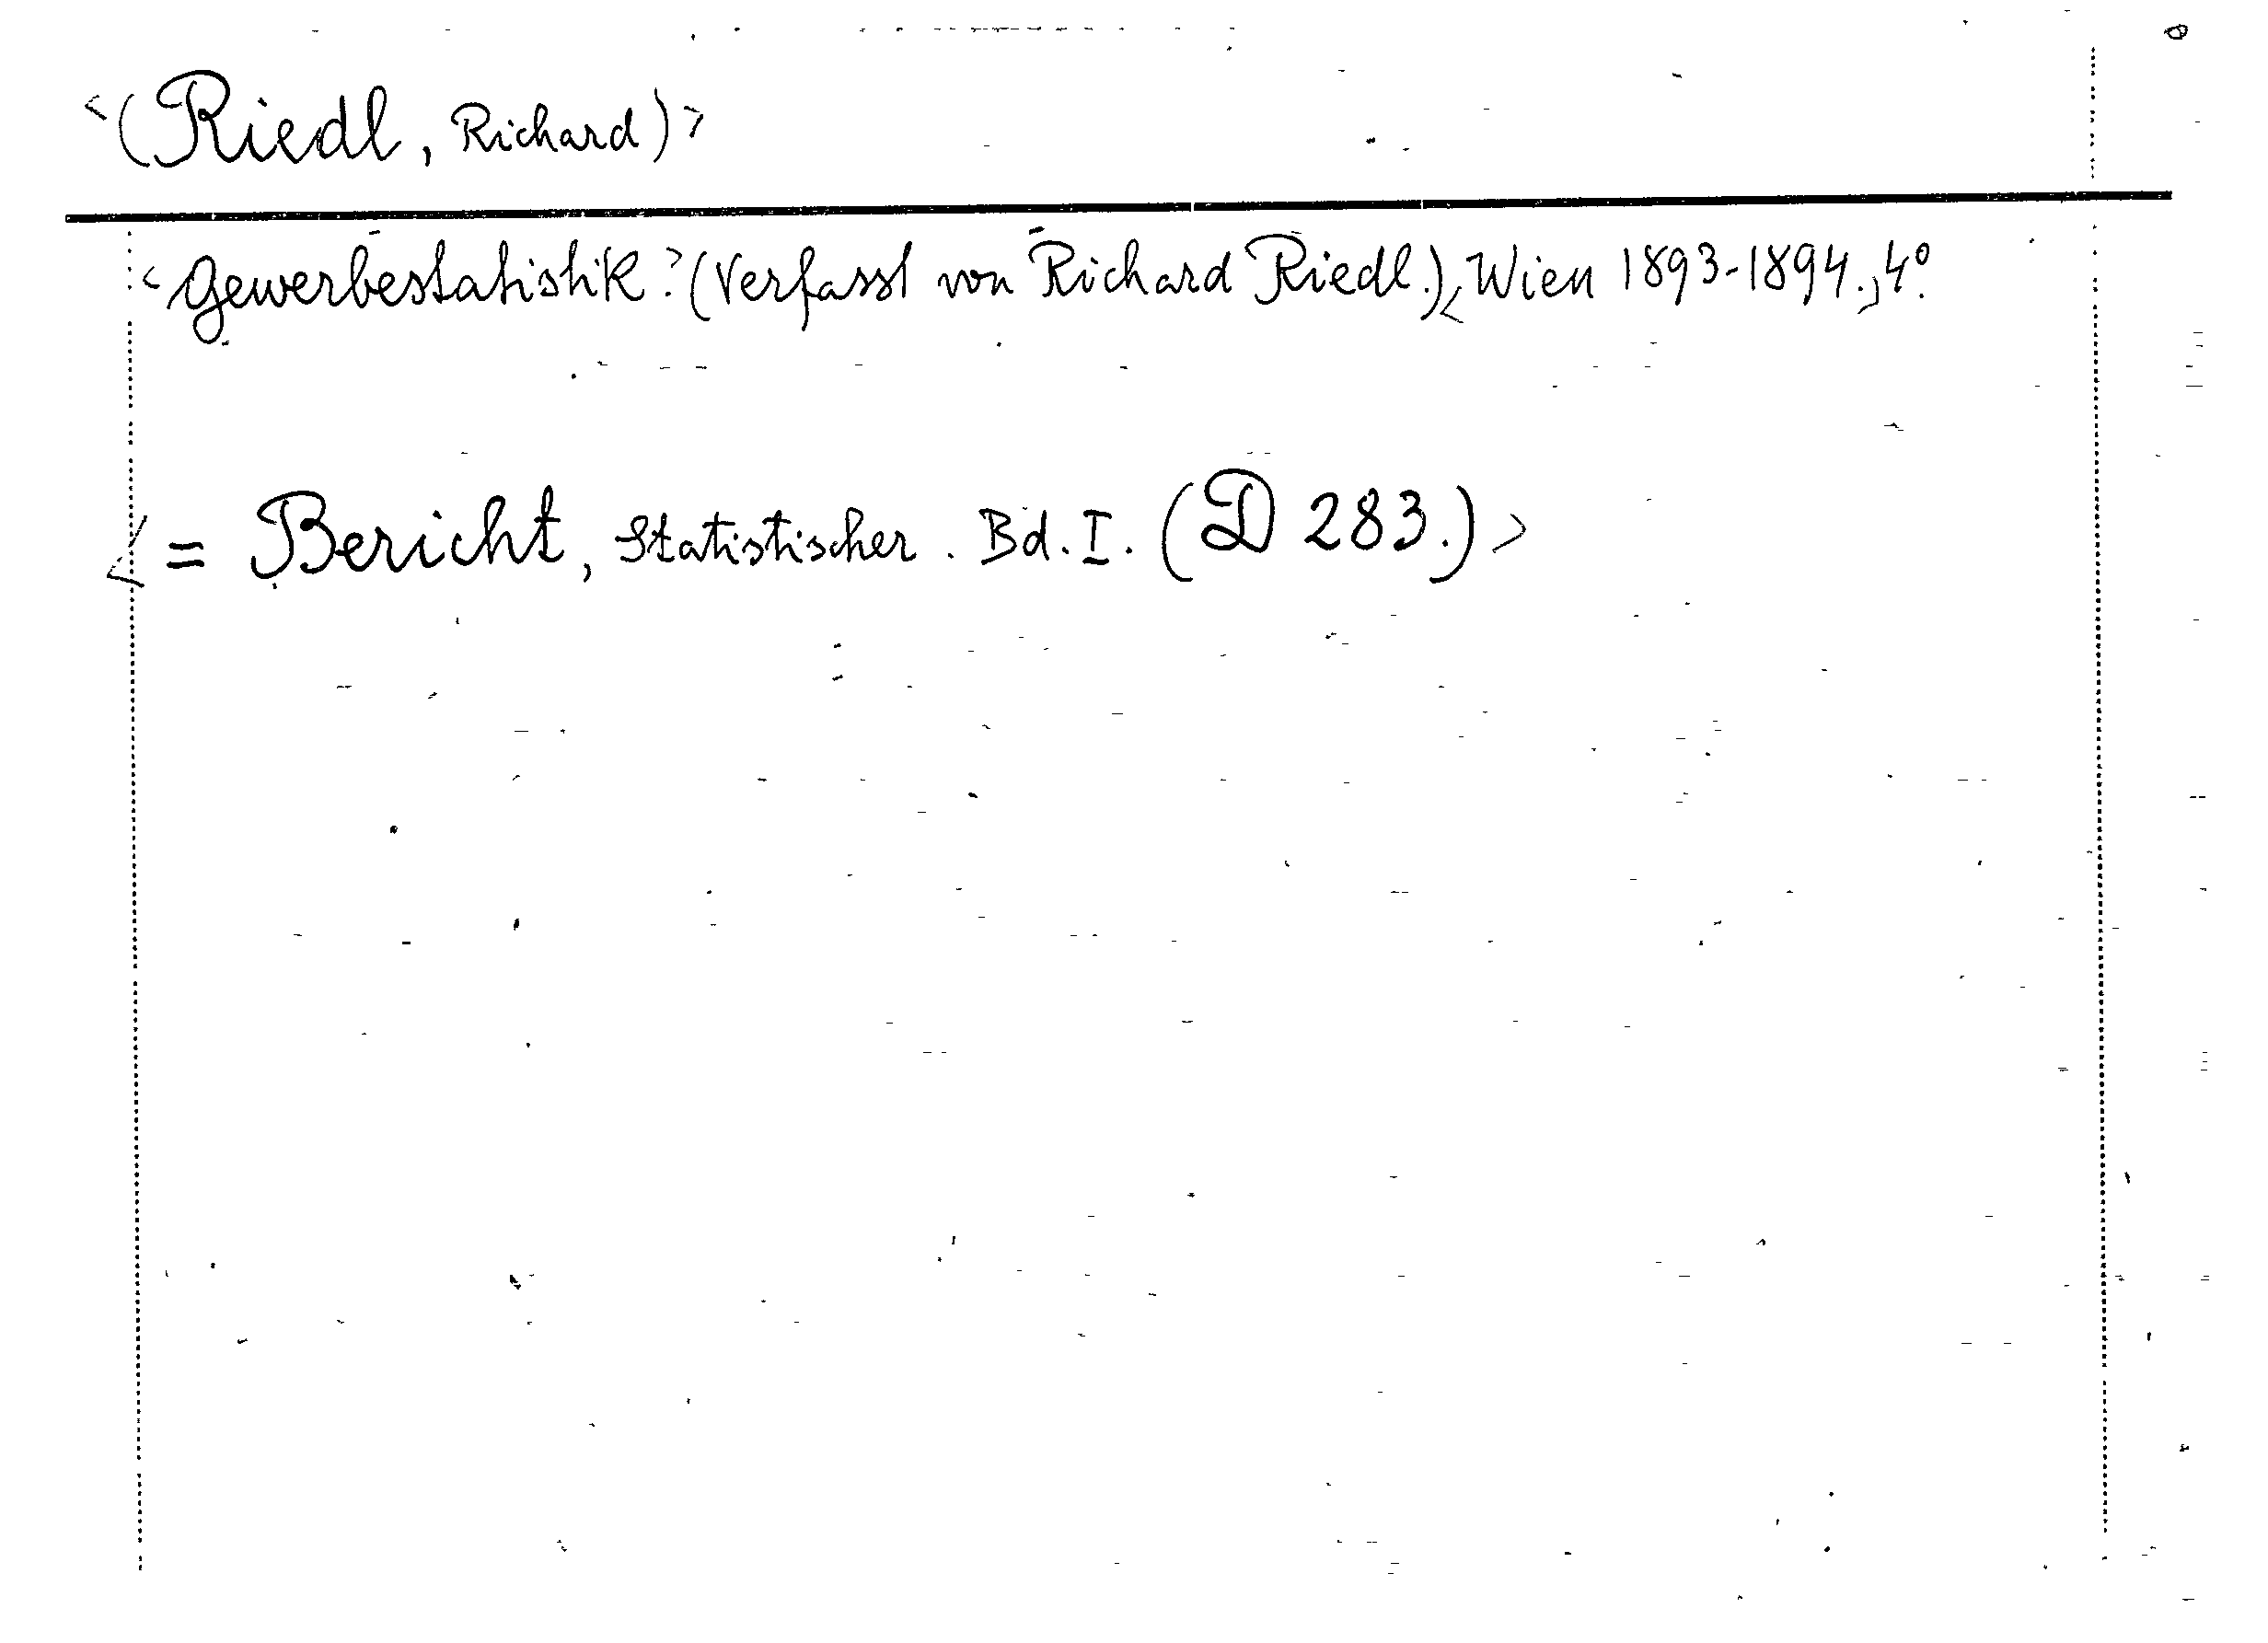 <(Riedl, Richard)>
<Gewerbestatistik.>(Verfasst von Richard Riedl.)<, Wien 1893-1894., 4°.
<= Bericht, Statistischer. Bd. I. (D 283.)>